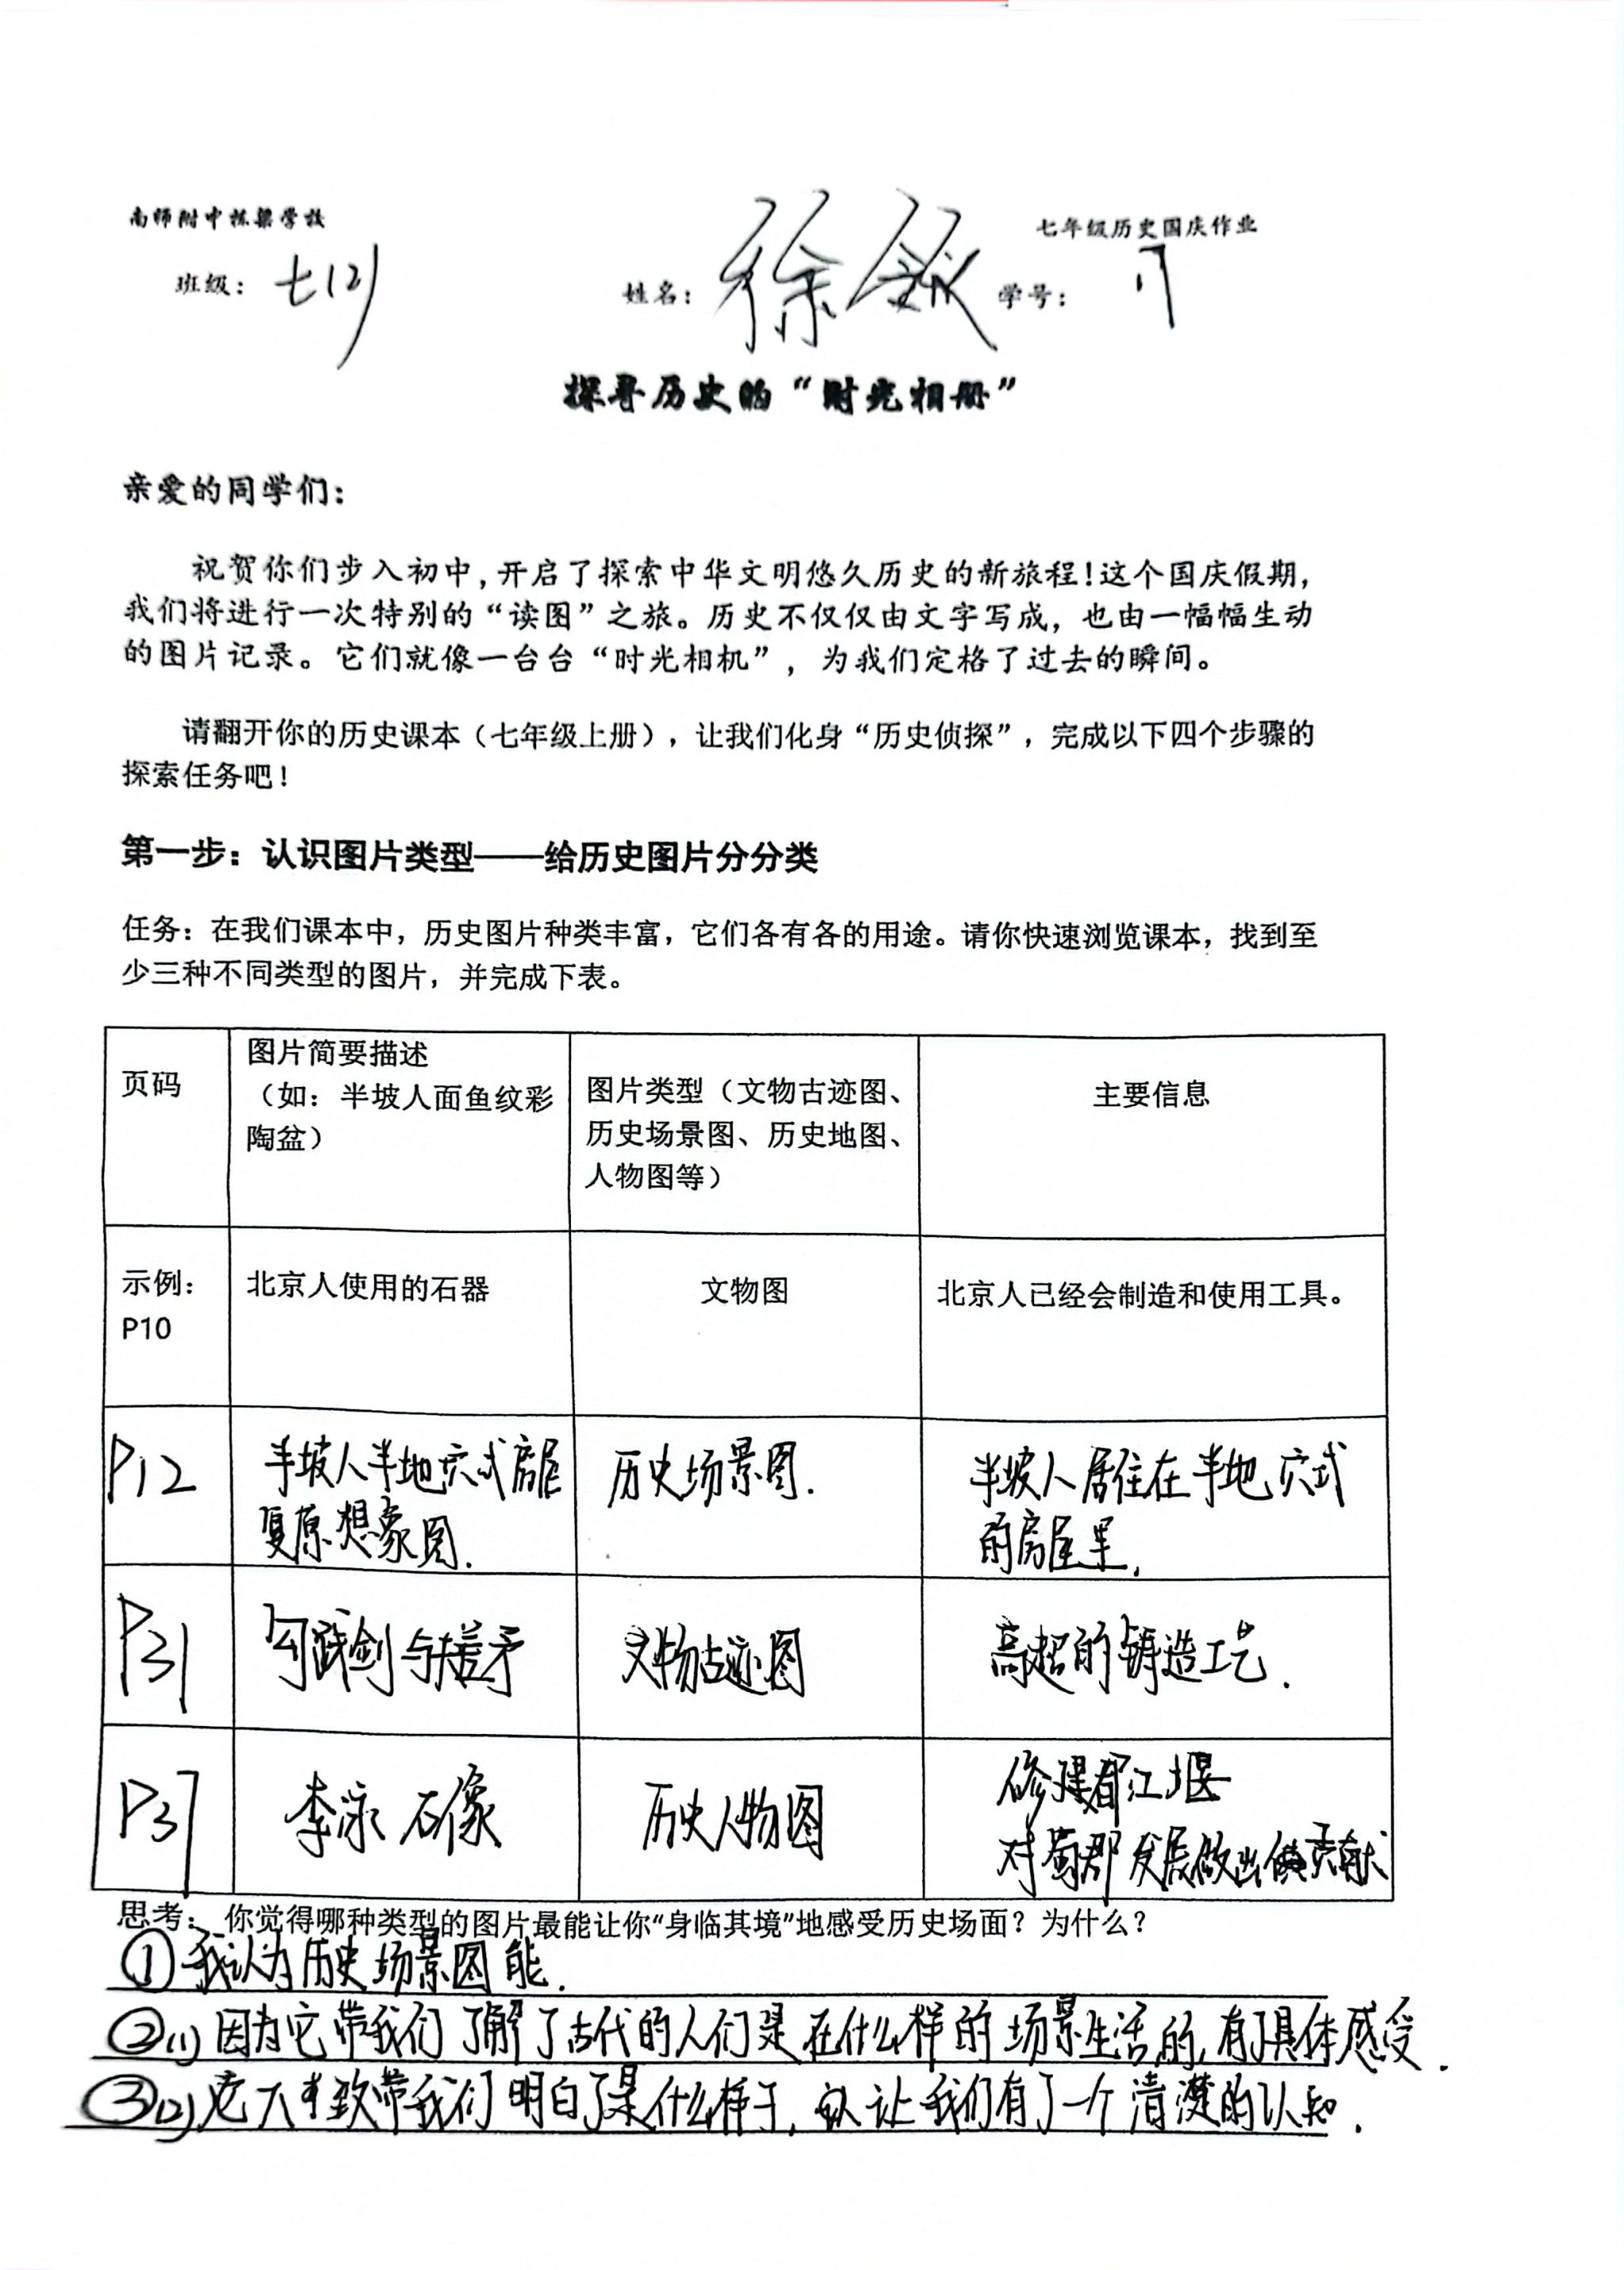 南师附中栋梁学校
七年级历史国庆作业
班级：七(2) 姓名：徐 学号：17
探寻历史的“时光相册”
亲爱的同学们：
祝贺你们步入初中，开启了探索中华文明悠久历史的新旅程！这个国庆假期，
我们将进行一次特别的“读图”之旅。历史不仅仅由文字写成，也由一幅幅生动
的图片记录。它们就像一台台“时光相机”，为我们定格了过去的瞬间。
请翻开你的历史课本（七年级上册），让我们化身“历史侦探”，完成以下四个步骤的
探索任务吧！
第一步：认识图片类型——给历史图片分分类
任务：在我们课本中，历史图片种类丰富，它们各有各的用途。请你快速浏览课本，找到至
少三种不同类型的图片，并完成下表。
页码
图片简要描述
（如：半坡人面鱼纹彩
陶盆）
图片类型（文物古迹图、
历史场景图、历史地图、
人物图等）
主要信息
示例：
P10
北京人使用的石器
文物图
北京人已经会制造和使用工具。
P12
半坡人半地穴式房屋
复原想象图.
历史场景图.
半坡人居住在半地穴式
的房屋里.
P31
勾践剑与差矛
文物古迹图
高超的铸造工艺.
P37
李冰石像
历史人物图
修建都江堰
对蜀郡发展做出贡献
思考： 你觉得哪种类型的图片最能让你“身临其境”地感受历史场面？为什么？
①我认为历史场景图能.
②(1)因为它带我们了解了古代的人们是在什么样的场景生活的,有了具体感受.
③(2)它大致带我们明白了是什么样子,让我们有了一个清楚的认知.